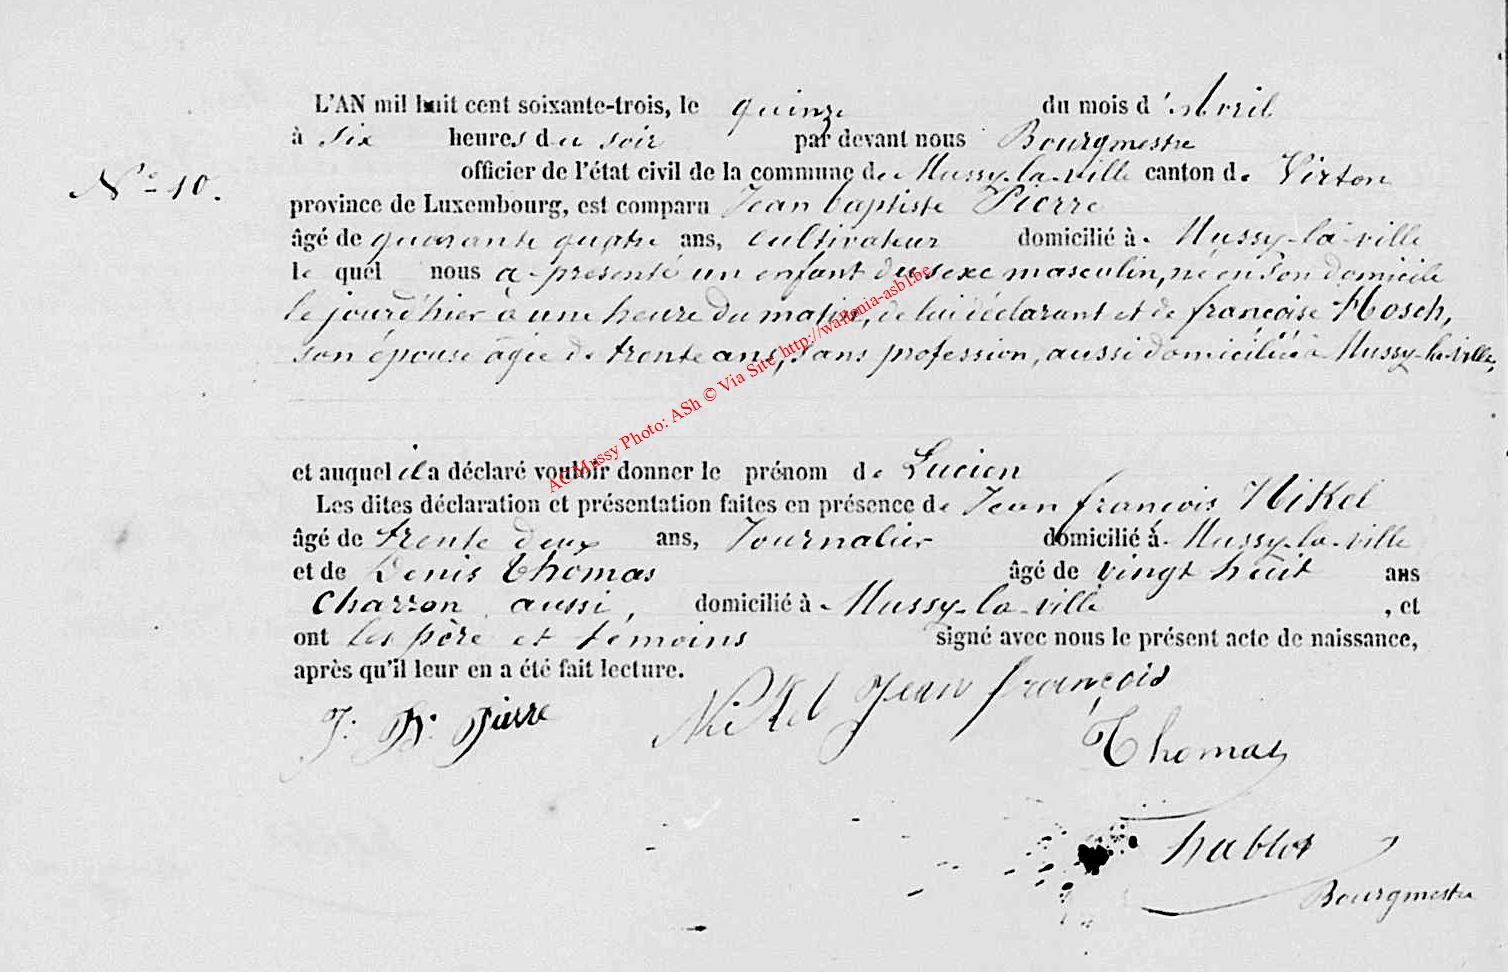 L'AN mil huit cent soixante-trois, le quinze du mois d'Avril
à six heures du soir par devant nous Bourgmestre
N° 10. officier de l'état civil de la commune de Mussy-la-ville canton de Virton
province de Luxembourg, est comparu Jean baptiste Pierre
âgé de quarante quatre ans, cultivateur domicilié à Mussy-la-ville
le quel nous a présenté un enfant du sexe masculin, né en son domicile
le jourd'hier à une heure du matin, de lui déclarant et de françoise Hosch,
son épouse âgée de trente ans, sans profession, aussi domiciliée à Mussy-la-ville,
et auquel il a déclaré vouloir donner le prénom de Lucien
Les dites déclaration et présentation faites en présence de Jean françois Nikel
âgé de trente deux ans, Journalier domicilié à Mussy-la-ville
et de Denis Thomas âgé de vingt huit ans
Charron aussi, domicilié à Mussy-la-ville, et
ont les père et témoins signé avec nous le présent acte de naissance,
après qu'il leur en a été fait lecture.
J. B. Pierre Nikel Jean françois
Thomas
hablot
Bourgmestre
AC Mussy Photo: ASh © Via Site http://wallonia-asbl.be